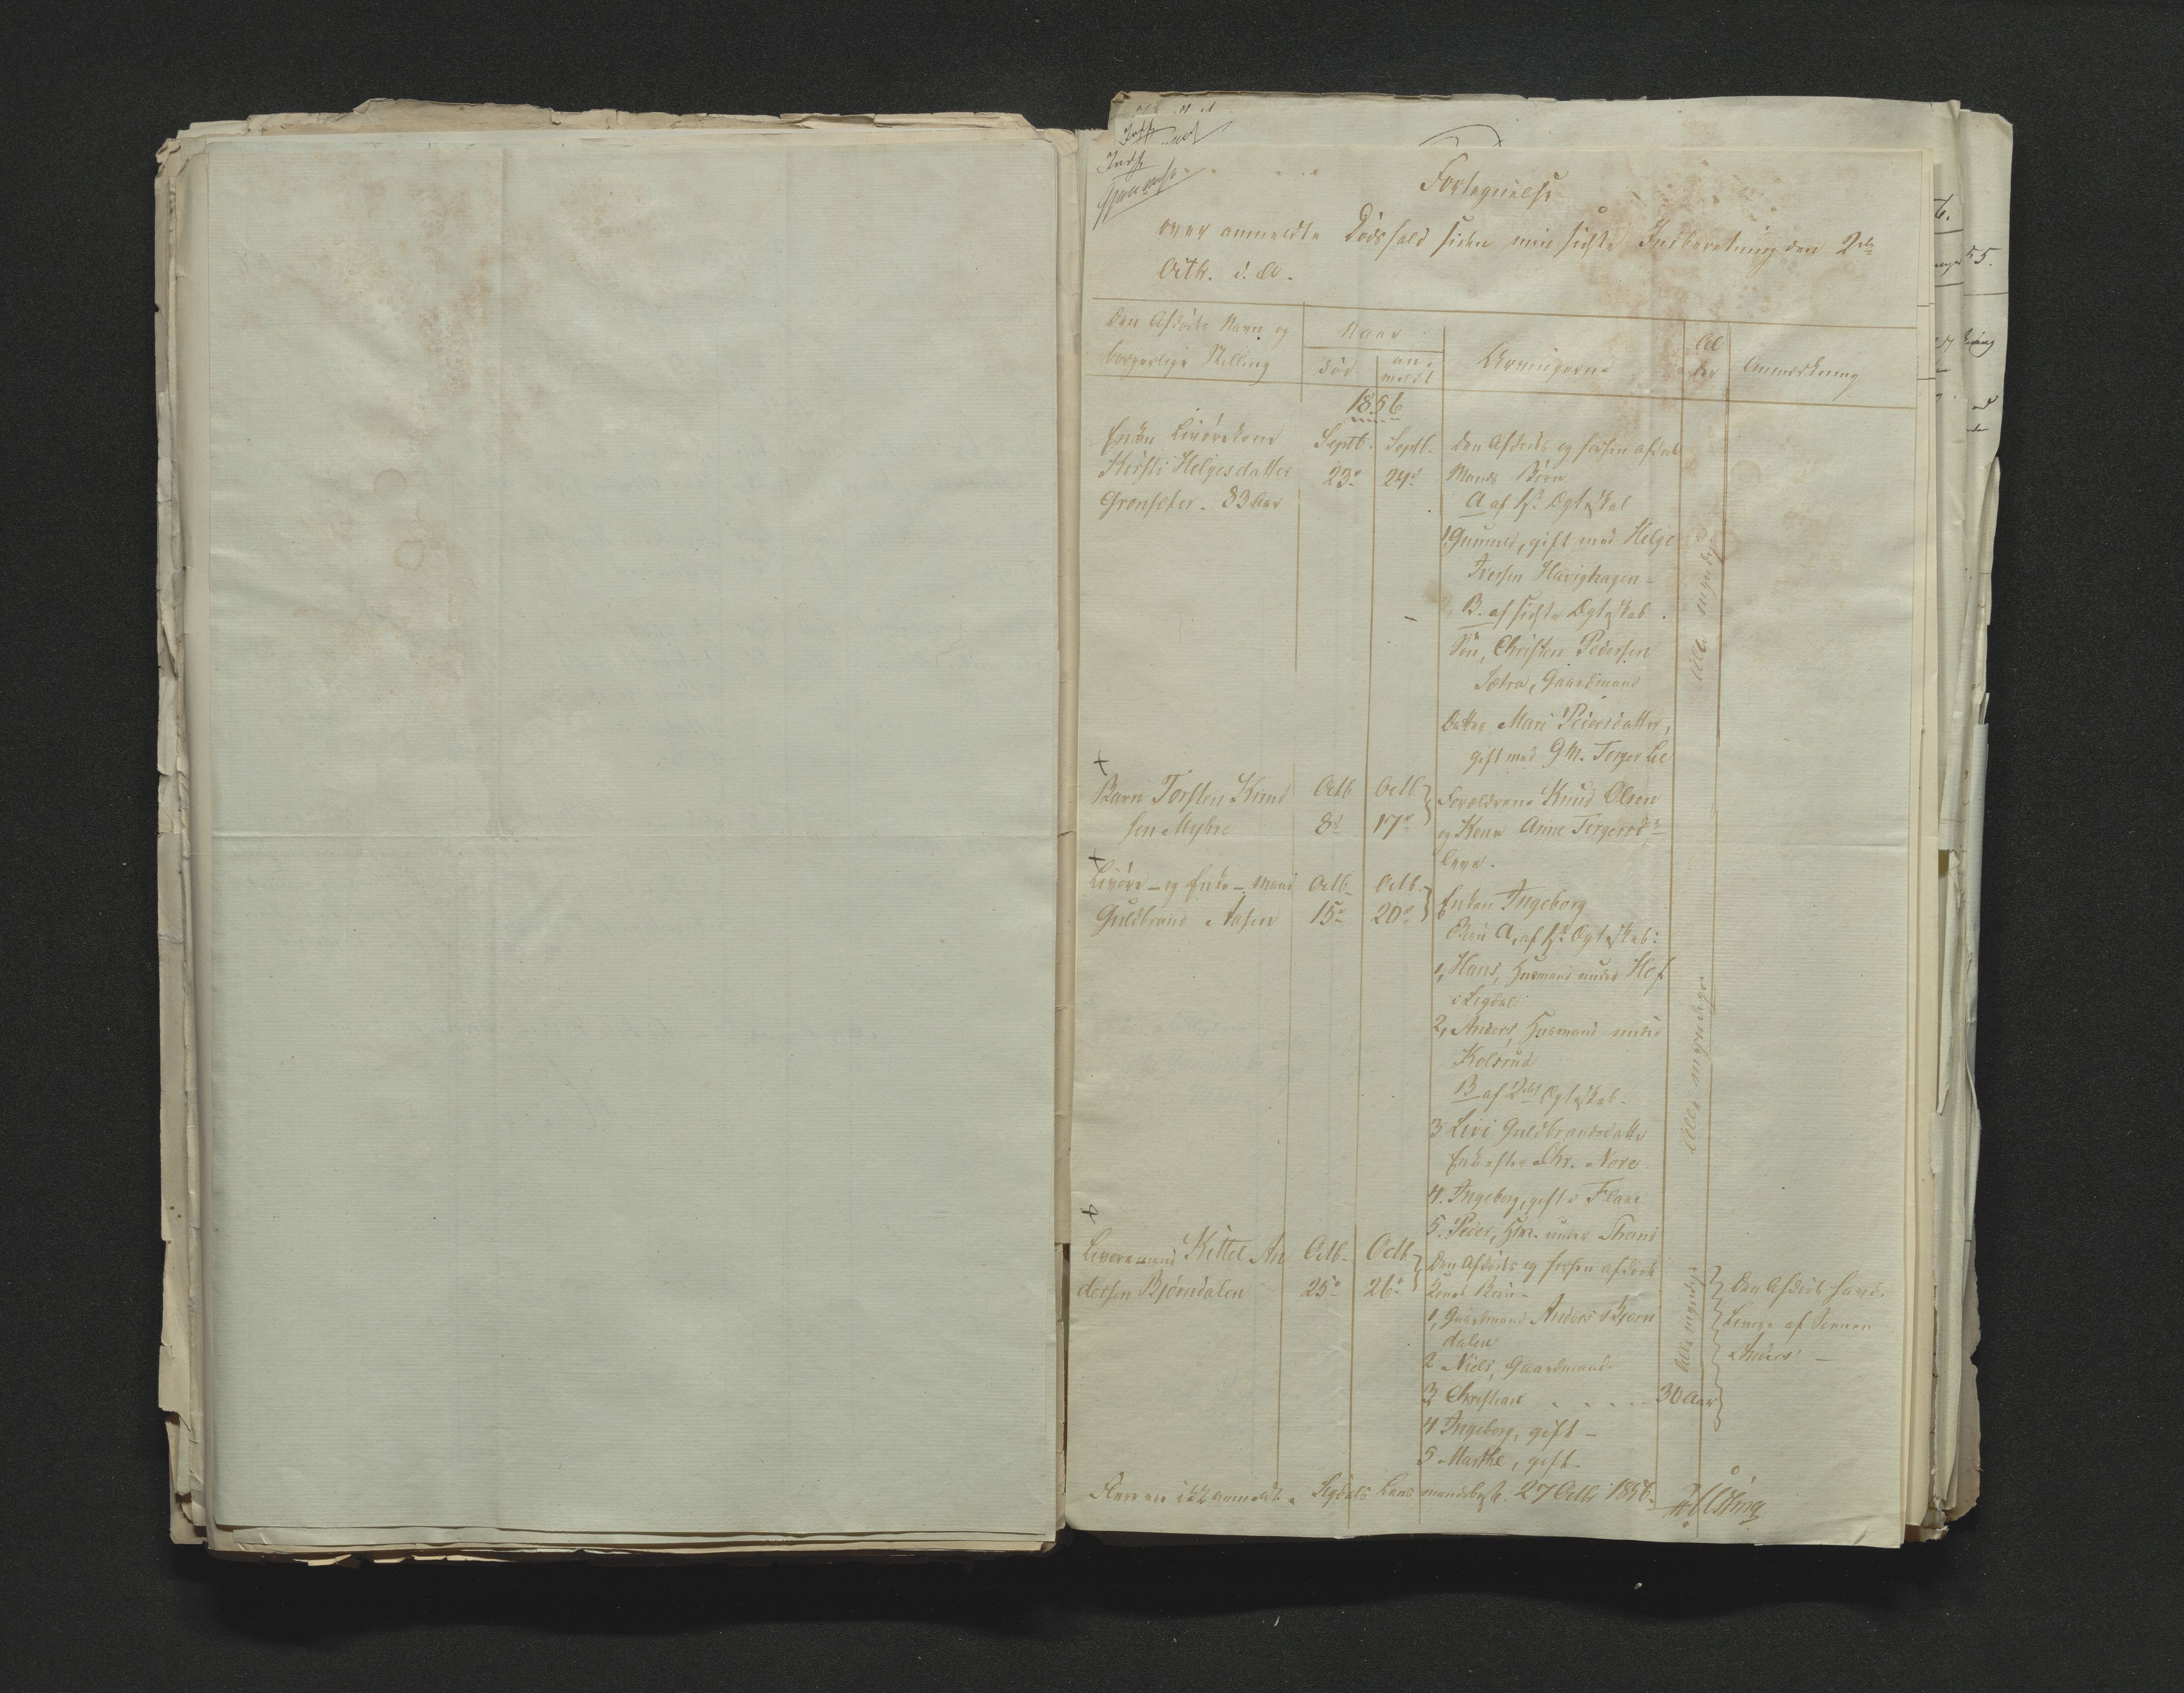 Fortegnelse
over anmeldte Dødsfald siden min sidste Indberetning den 2den
Octb. d. A.
Den Afdødes Navn og
borgerlige Stilling
Naar
død
an-
meldt
Arvingerne
Al
der
Anmærkning
1856
Enken Livørekone
Kirsti Helgesdatter
Grønseter. 83 Aar
Septb.
23de
Septb.
24de
Den Afdøde og forhen afdøde
Mands Børn
A af 1ste Ægteskab
1, Gunnild, gift med Helge
Iversen Havighagen
B. af sidste Ægteskab.
Søn, Christen Pedersen
Sætra, Gaardmand
Datter Mari Pedersdatter,
gift med GM. Torger Lie
Alle myndige
Barn Torsten Knud
sen Myhre
Octb
8de
Octb
17de
Forældrene Knud Olsen
og Kone Anne Torgersdr
leve.
Livøre- og Enke-Mand
Guldbrand Aasen
Octb.
15de
Octb.
20de
Enken Ingeborg
Børn A, af 1ste Ægteskab:
1, Hans, Husmand under Hof
i Sigdal
2, Anders, Husmand under
Kolsrud
B af 2det Ægteskab.
3 Livi Guldbrandsdatter
Enke efter Chr. Nore
4. Ingeborg, gift i Flaae
5. Peder, Hm. under Strand
Alle myndige
Livøremand Kittel An
dersen Bjørndalen
Octb.
25de
Octb
26de
Den Afdødes og forhen afdøde
Kones Børn
1, Gaardmand Anders Bjørn
dalen
2 Niels, Gaardmand
3 Christian . . . . . 30 Aar
4 Ingeborg, gift -
5 Marthe, gift.
Alle myndige
Den Afdøde havde
Livøre af Sønnen
Anders -
Flere ere ikke anmeldte. Sigdals Lensmandsbest. 27 Octb 1856.